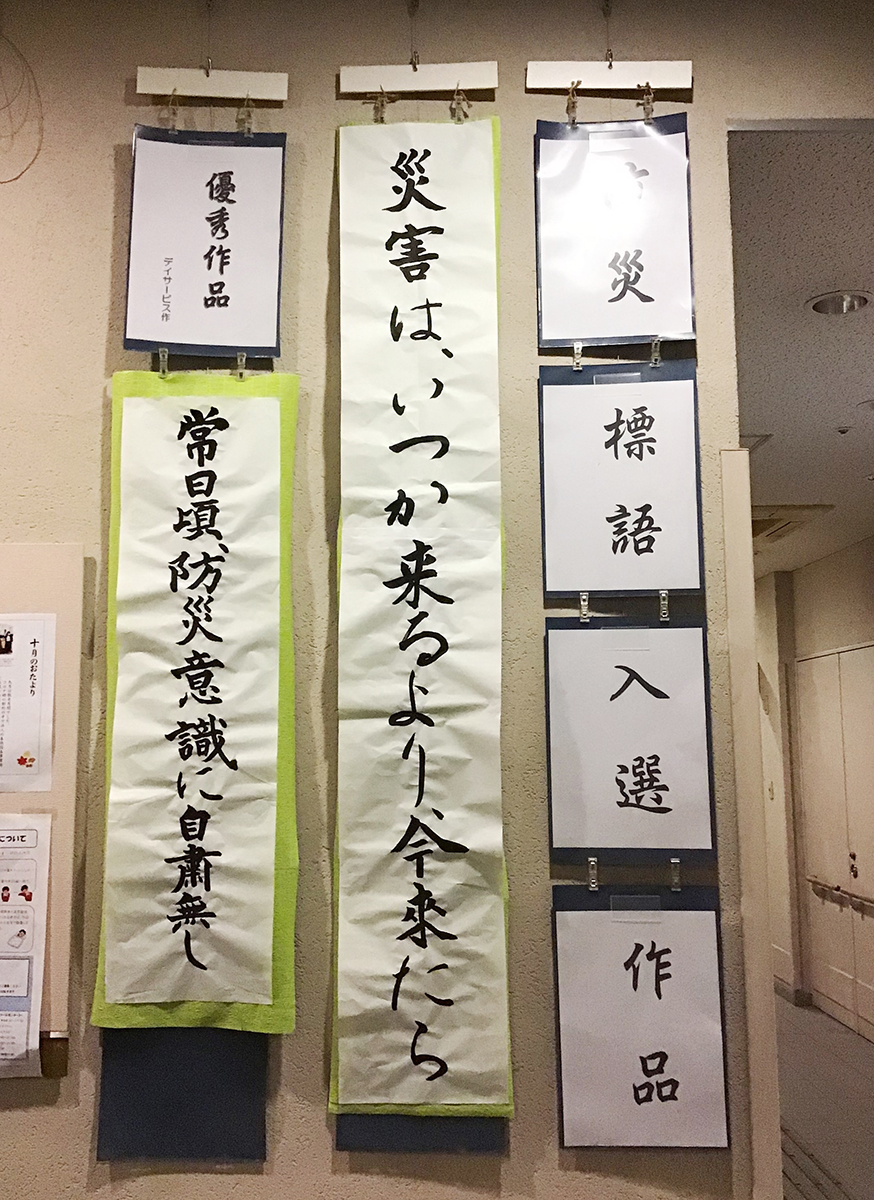 防災
標語
入選
作品
災害は、いつか来るより、今來たら
優秀作品
デイサービス作
常日頃、防災意識に自粛無し
十月のおたより
について